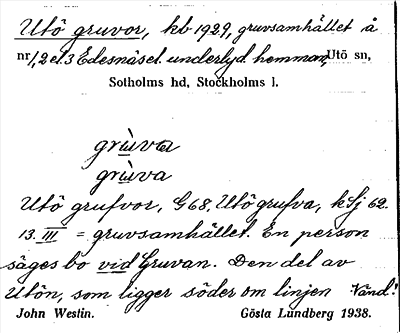 Utö gruvor, kb 1929, gruvsamhället å
nr 1, 2 el. 3 Edesnäsel. underlyd. hemman, Utö sn,
Sotholms hd, Stockholms l.
grùva
grùva
Utö grufvor, G 68. Utö grufva, k Sj 62.
13. III = gruvsamhället. En person
säges bo vid Gruvan. Den del av
Utön, som ligger söder om linjen Vänd!
John Westin. Gösta Lundberg 1938.